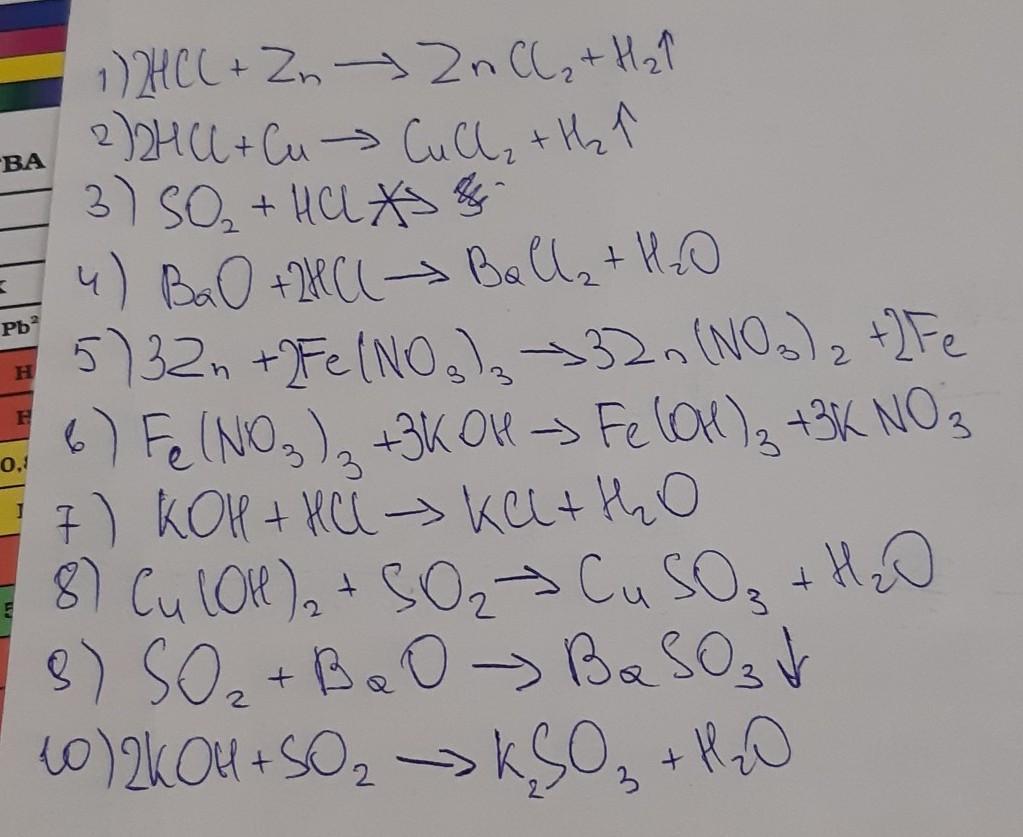 ВА
Pb²
Н
0,
5
1) 2HCl + Zn → ZnCl₂ + H₂↑
2) 2HCl + Cu → CuCl₂ + H₂↑
3) SO₂ + HCl →
4) BaO + 2HCl → BaCl₂ + H₂O
5) 3Zn + 2Fe(NO₃)₃ → 3Zn(NO₃)₂ + 2Fe
6) Fe(NO₃)₃ + 3KOH → Fe(OH)₃ + 3KNO₃
7) KOH + HCl → KCl + H₂O
8) Cu(OH)₂ + SO₂ → CuSO₃ + H₂O
9) SO₂ + BaO → BaSO₃↓
10) 2KOH + SO₂ → K₂SO₃ + H₂O